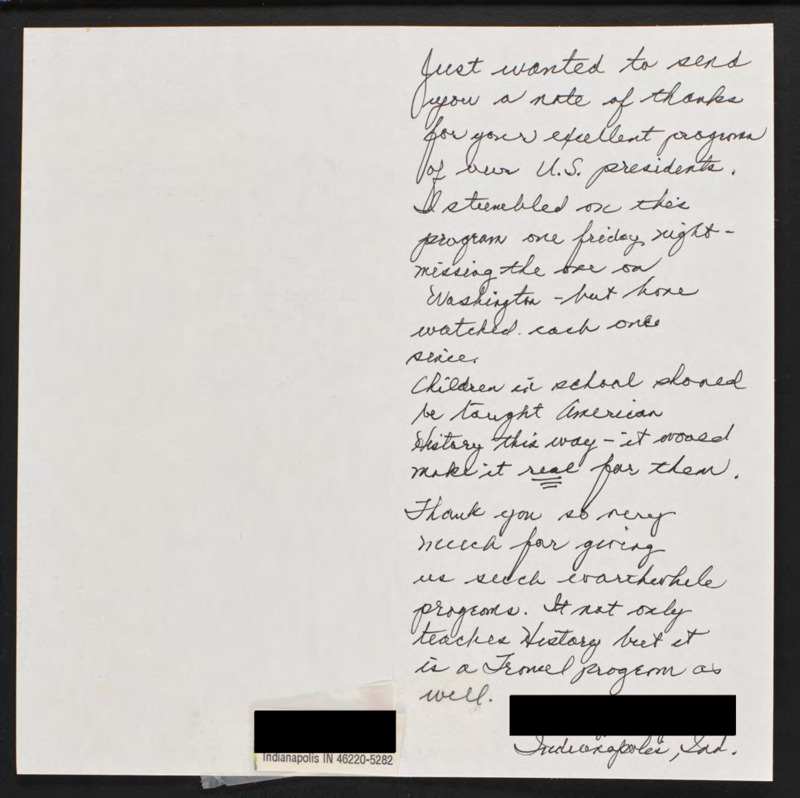 Just wanted to send
you a note of thanks
for your excellent program
of our U.S. presidents.
I stumbled on this
program one friday night -
missing the one on
Washington - but have
watched each one
since.
Children in school should
be taught American
History this way - it would
make it real for them.
Thank you so very
much for giving
us such worthwhile
programs. It not only
teaches History but it
is a Travel program as
well.
Indianapolis, Ind.
Indianapolis IN 46220-5282